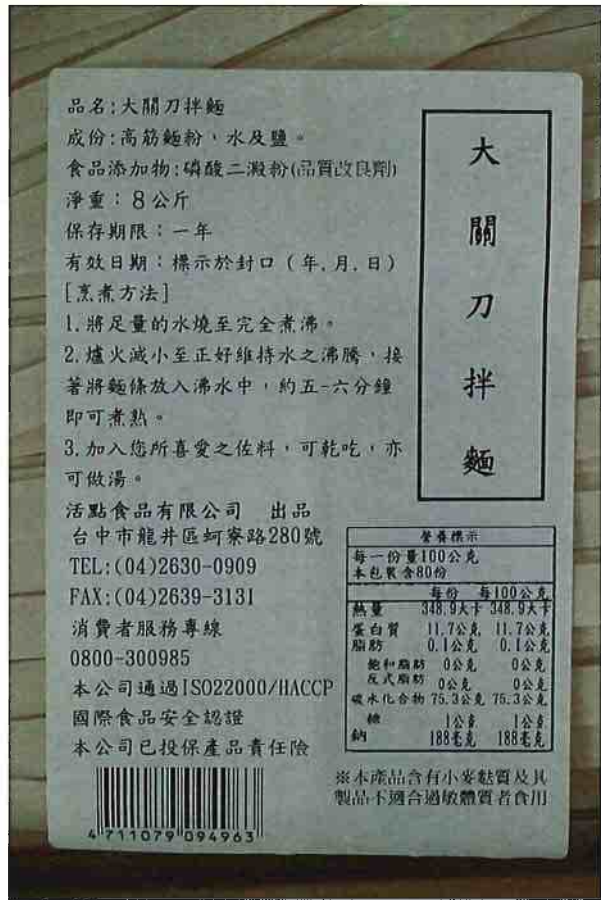 品名:大關刀拌麵
成份:高筋麵粉,水及鹽。
食品添加物:磷酸二澱粉(品質改良劑)
淨重:8公斤
保存期限:一年
有效日期:標示於封口(年,月,日)
[烹煮方法]
1.將足量的水燒至完全煮沸。
2.爐火減小至正好維持水之沸騰,接
著將麵條放入沸水中,約五-六分鐘
即可煮熟。
3.加入您所喜愛之佐料,可乾吃,亦
可做湯。
活點食品有限公司 出品
台中市龍井區蚵寮路280號
TEL:(04)2630-0909
FAX:(04)2639-3131
消費者服務專線
0800-300985
本公司通過ISO22000/HACCP
國際食品安全認證
本公司已投保產品責任險
4 711079 094963
大關刀拌麵
營養標示
每一份量100公克
本包裝含80份
每份 每100公克
熱量 348.9大卡 348.9大卡
蛋白質 11.7公克 11.7公克
脂肪 0.1公克 0.1公克
飽和脂肪 0公克 0公克
反式脂肪 0公克 0公克
碳水化合物 75.3公克 75.3公克
糖 1公克 1公克
鈉 188毫克 188毫克
※本產品含有小麥麩質及其
製品不適合過敏體質者食用